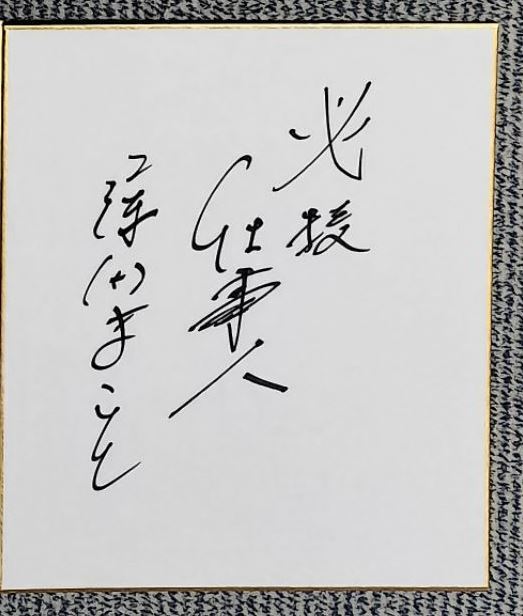 必殺
仕事人
藤田まこと